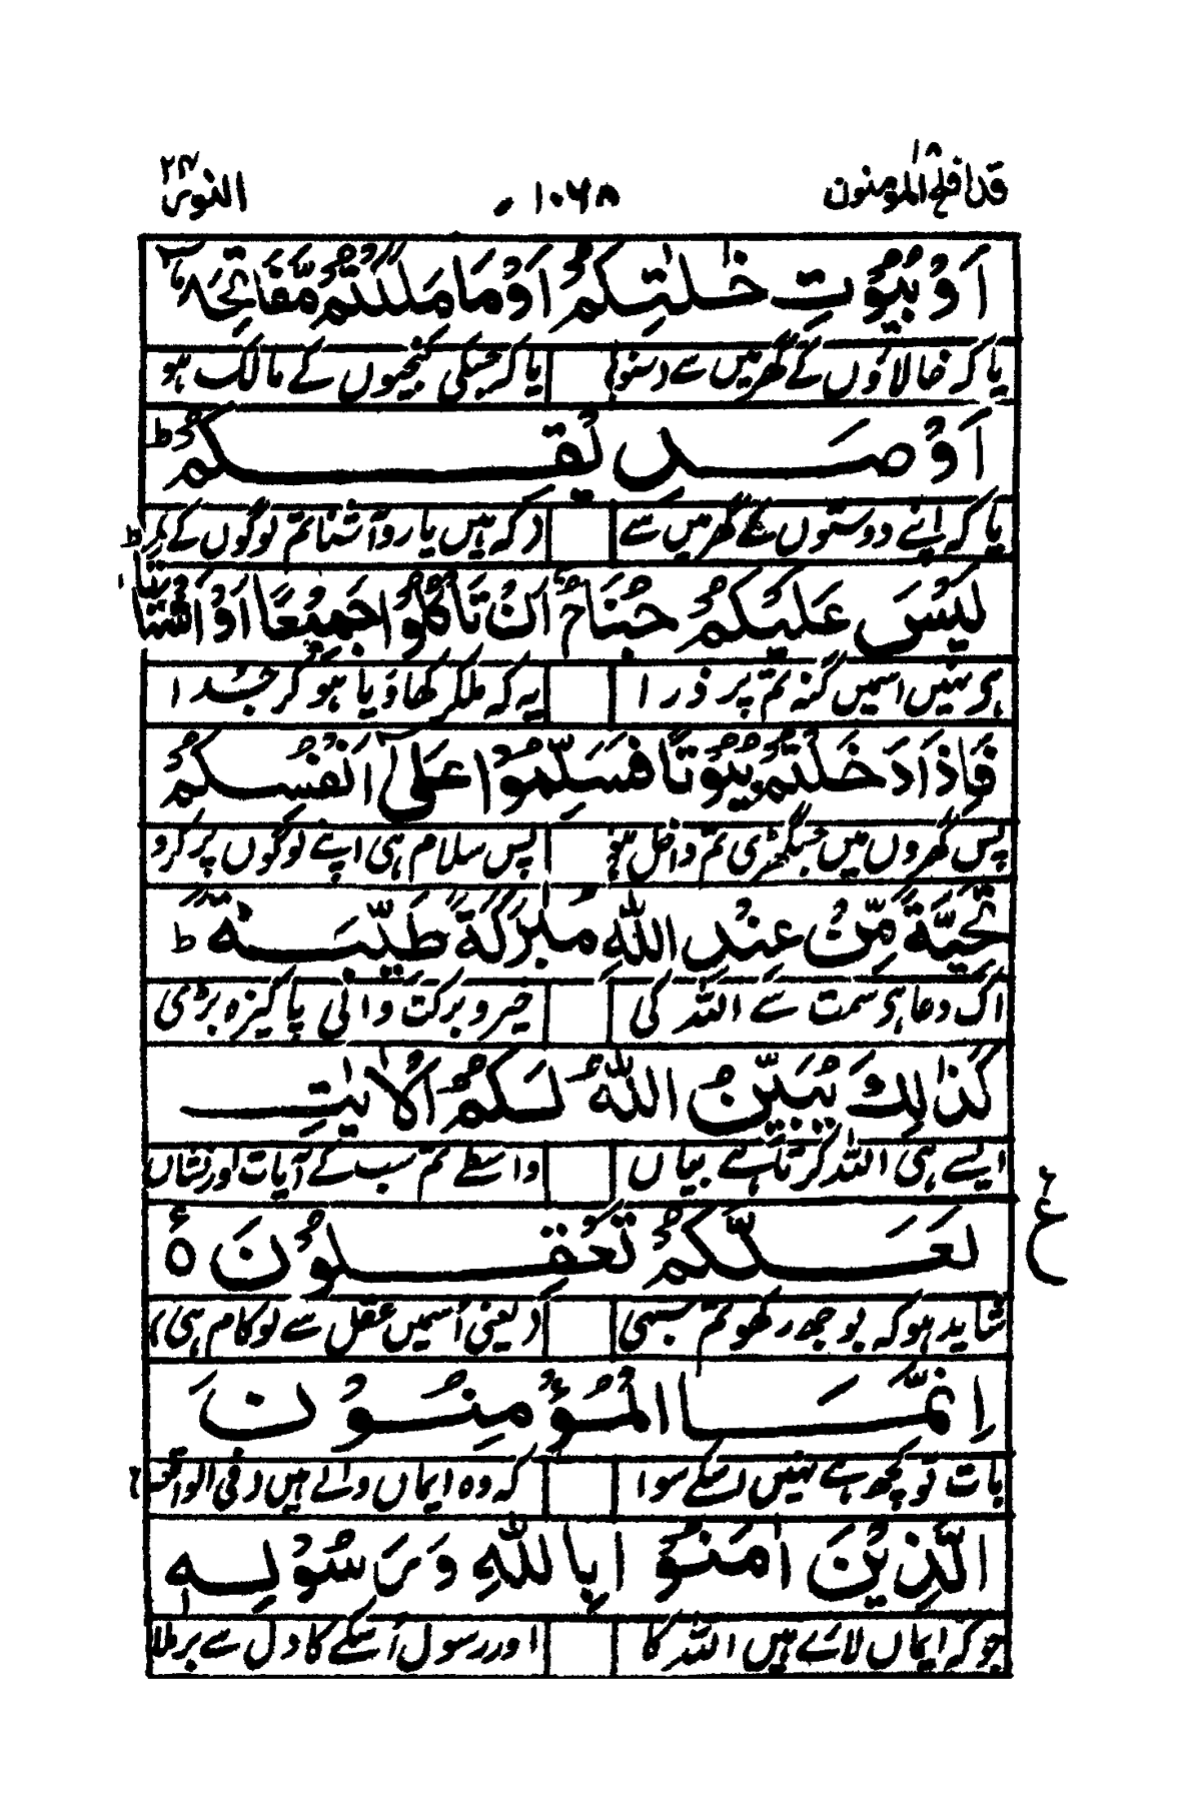 قد افلح المؤمنون ۱۸
۱۰۶۸
النور ۲۴
اَوْ بُيُوْتِ خٰلٰتِكُمْ اَوْ مَا مَلَكْتُمْ مَّفَاتِحَهٗٓ
یا کہ خالاؤں کے گھر میں سے دسنو یا کہ جسکی کنجیوں کے مالک ہو
اَوْ صَدِيْقِكُمْ ؕ
یا کہ اپنے دوستوں کے گھر میں سے (کہ ہیں یار و آشنا تم لوگوں کے
لَيْسَ عَلَيْكُمْ جُنَاحٌ اَنْ تَاْكُلُوْا جَمِيْعًا اَوْ اَشْتَاتًا ؕ
ہی نہیں اسمیں گنہ تم پر ذرا یہ کہ ملکر کھاؤ یا ہو کر جدا
فَاِذَا دَخَلْتُمْ بُيُوْتًا فَسَلِّمُوْا عَلٰٓى اَنْفُسِكُمْ
پس گھروں میں جس گھڑی تم داخل ہو پس سلام ہی اپنے لوگوں پر کرو
تَحِيَّةً مِّنْ عِنْدِ اللّٰهِ مُبٰرَكَةً طَيِّبَةً ؕ
اک دعا ہی سمت سے اللہ کی خیر و برکت والی پاکیزہ بڑی
كَذٰلِكَ يُبَيِّنُ اللّٰهُ لَكُمُ الْاٰيٰتِ
ایسے ہی اللہ کرتا ہے بیاں واسطے تم سب کے آیات اور نشاں
لَعَلَّكُمْ تَعْقِلُوْنَ ۠
ع
شاید ہو کہ بوجھ رکھو تم سبھی (یعنی اُسمیں عقل سے لو کام ہی)
اِنَّمَا الْمُؤْمِنُوْنَ
بات تو کچھ ہے نہیں اسکے سوا کہ وہ ایماں والے ہیں (فی الواقعہ)
الَّذِيْنَ اٰمَنُوْا بِاللّٰهِ وَرَسُوْلِهٖ
جو کہ ایماں لائے ہیں اللہ کا اور رسول اُسکے کا دل سے برملا